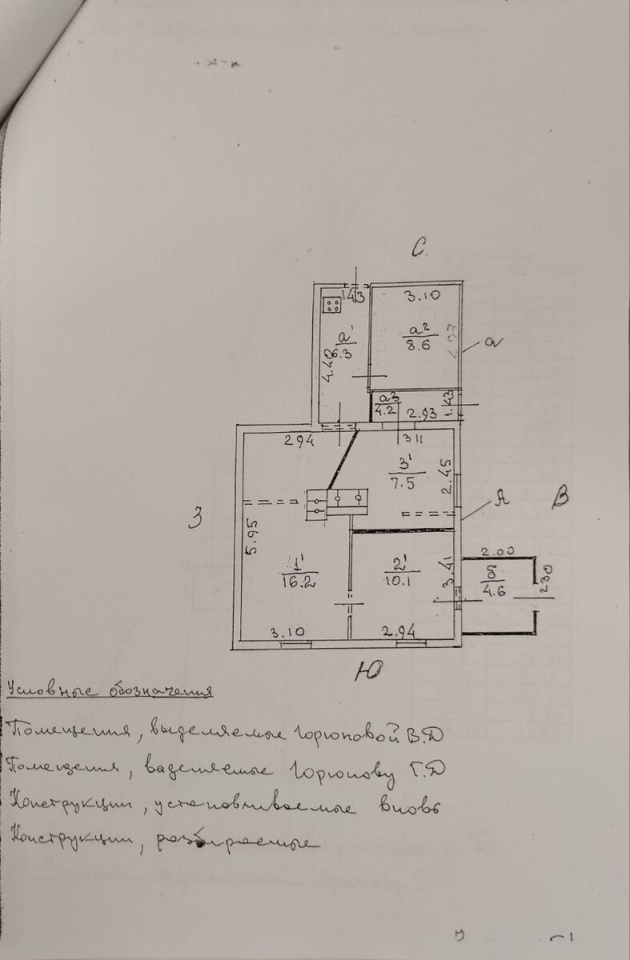 С
1.43
3.10
а'
6.3
4.40
а2
8.6
а
а3
4.2
2.93
1.43
2.94
3.11
3'
7.5
2.45
А
В
З
5.95
1'
16.2
2'
10.1
3.41
2.00
б
4.6
2.30
3.10
2.94
Ю
Условные обозначения
Помещения, выделяемые Горюновой В.Д
Помещения, выделяемые Горюнову Г.Д
Конструкции, устанавливаемые вновь
Конструкции, разбираемые